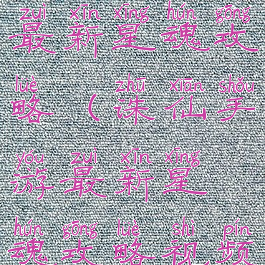 zuì xīn xīng hún gōng
最新星魂攻
lüè zhū xiān shǒu
略（诛仙手
yóu zuì xīn xīng
游最新星
hún gōng lüè shì pín
魂攻略视频